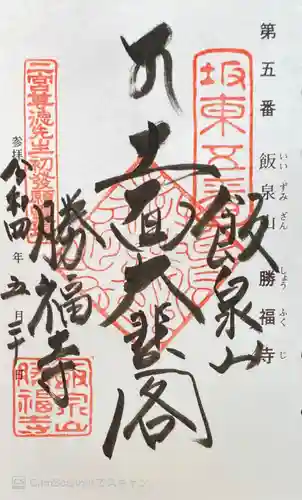 第五番 飯泉山 勝福寺
いい ずみ ざん しょう ふく じ
坂東五番
飯泉山
十一面大悲閣
勝福寺
二宮尊徳先生初發願
参拝 令和四年五月二十日
飯泉山
勝福寺
CamScannerでスキャン